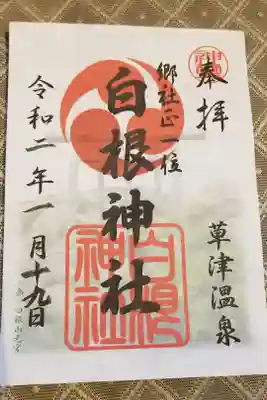 奉拝
草津温泉
郷社正一位
白根神社
白根神社
令和二年一月十九日